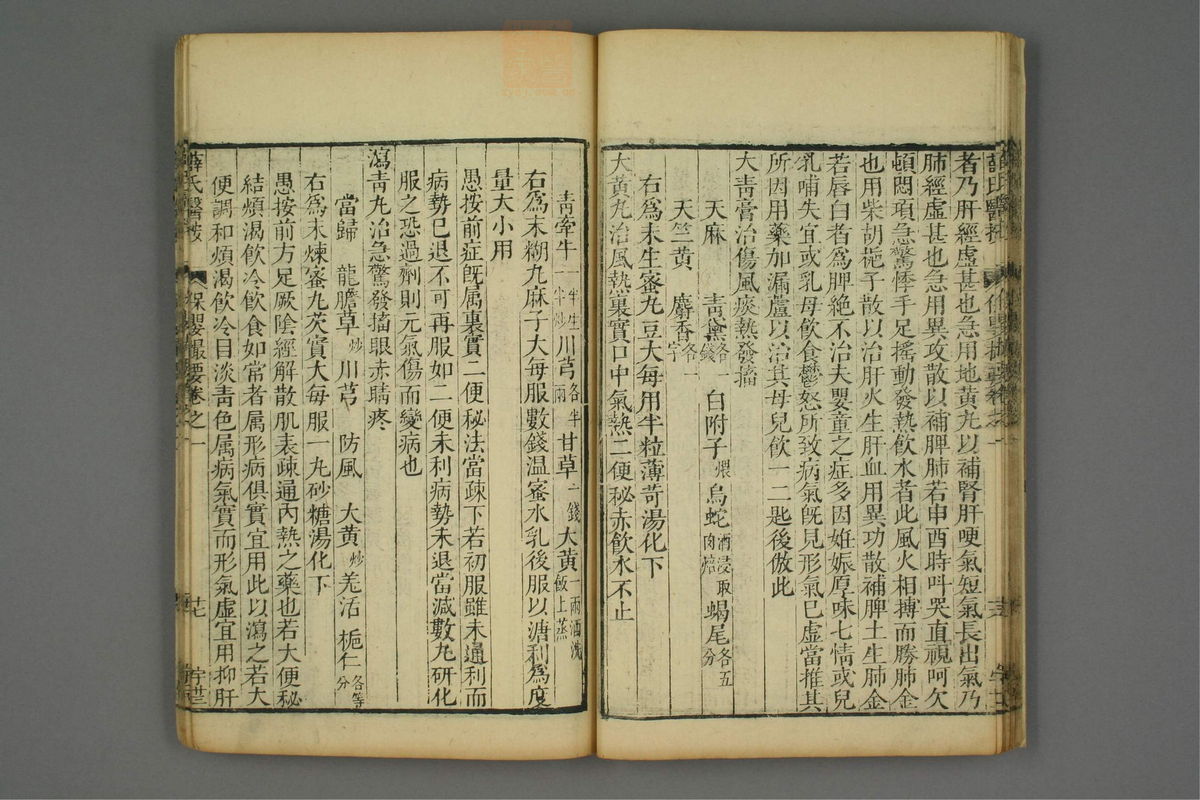 者乃肝經虛甚也急用地黃丸以補腎肝哽氣短氣長出氣乃
肺經虛甚也急用異攻散以補脾肺若申酉時呌哭直視呵欠
頓悶項急驚悸手足搖動發熱飲水者此風火相搏而勝肺金
也用柴胡梔子散以治肝火生肝血用異功散補脾土生肺金
若唇白者為脾絶不治夫嬰童之症多因妊娠厚味七情或兒
乳哺失宜或乳母飲食鬱怒所致病氣旣見形氣已虛當推其
所因用藥加漏蘆以治其母兒飲一二匙後倣此
大靑膏治傷風痰熱發搐
天麻 靑黛各一錢 白附子煨 烏蛇酒浸取肉焙 蝎尾各五分
天竺黃 麝香各一字
右為末生蜜丸豆大每用半粒薄荷湯化下
大黃丸治風熱裏實口中氣熱二便秘赤飲水不止
靑牽牛一半生一半炒 川芎各半兩 甘草二錢 大黃一兩酒洗飯上蒸
右爲末糊丸麻子大每服數錢温蜜水乳後服以溏利爲度
量大小用
愚按前症旣属裏實二便秘法當疎下若初服雖未通利而
病勢已退不可再服如二便未利病勢未退當減數丸研化
服之恐過劑則元氣傷而變病也
瀉靑丸治急驚發搐眼赤睛疼
當歸 龍膽草炒 川芎 防風 大黃炒 羌活 梔仁各等分
右為末煉蜜丸芡實大每服一丸砂糖湯化下
愚按前方足厥陰經解散肌表疎通內熱之藥也若大便秘
結煩渴飲冷飲食如常者属形病俱實宜用此以瀉之若大
便調和煩渴飲冷目淡靑色属病氣實而形氣虛宜用抑肝
薛氏醫按 保嬰撮要卷之一